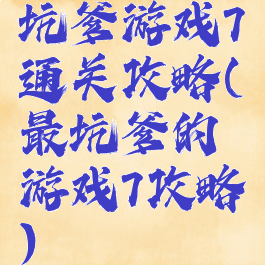 坑爹游戏7
通关攻略(
最坑爹的
游戏7攻略
)